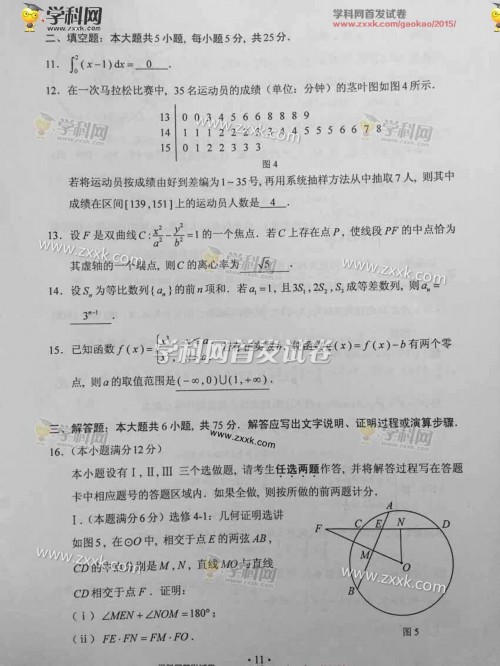 学科网首发试卷
www.zxxk.com/gaokao/2015/
学科网
www.zxxk.com
二、填空题：本大题共5小题，每小题5分，共25分．
11．∫₀²(x−1)dx = 0 ．
12．在一次马拉松比赛中，35名运动员的成绩（单位：分钟）的茎叶图如图4所示．
13 | 0 0 3 4 5 6 6 8 8 8 9
14 | 1 1 1 2 2 2 3 3 4 4 5 5 5 6 6 7 8
15 | 0 1 2 2 3 3 3
图4
若将运动员按成绩由好到差编为1~35号，再用系统抽样方法从中抽取7人，则其中
成绩在区间[139,151]上的运动员人数是 4 ．
13．设F是双曲线C: x²/a² − y²/b² = 1的一个焦点．若C上存在点P，使线段PF的中点恰为
其虚轴的一个端点，则C的离心率为 √5 ．
14．设Sₙ为等比数列{aₙ}的前n项和．若a₁=1，且3S₁, 2S₂, S₃成等差数列，则aₙ=
3ⁿ⁻¹ ．
15．已知函数f(x)={x³, (x)=f(x)−b有两个零
学科网首发试卷
点，则a的取值范围是(−∞,0)∪(1,+∞)．
三、解答题：本大题共6小题，共75分．解答应写出文字说明、证明过程或演算步骤．
16．（本小题满分12分）
本小题设有Ⅰ, Ⅱ, Ⅲ 三个选做题，请考生任选两题作答，并将解答过程写在答题
卡中相应题号的答题区域内．如果全做，则按所做的前两题计分．
Ⅰ．（本题满分6分）选修4-1：几何证明选讲
如图5，在⊙O中，相交于点E的两弦AB,
CD的中点分别是M, N，直线MO与直线
CD相交于点F．证明：
（ⅰ）∠MEN+∠NOM=180°；
（ⅱ）FE·FN=FM·FO．
A
F C E N D
M
O
B
图5
·11·
学科网首发试卷